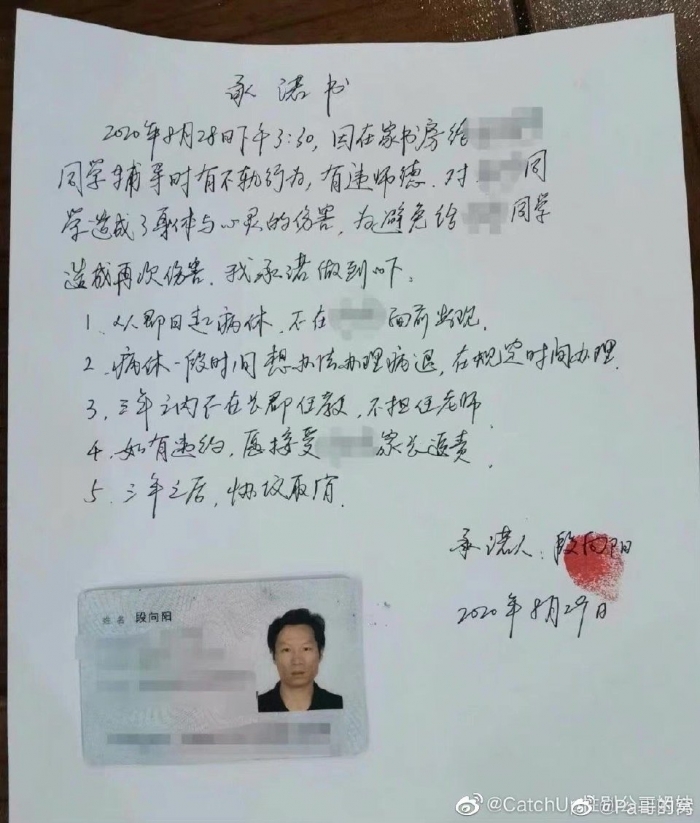 承诺书
2020年8月28日下午3:30,因在家书房给
同学辅导时有不轨行为,有违师德.对 同
学造成了身体与心灵的伤害,为避免给 同学
造成再次伤害.我承诺做到以下:
1、从即日起病休,不在 面前出现.
2、病休一段时间想办法办理病退,在规定时间办理.
3、三年之内不在长郡任教,不担任老师.
4、如有违约,愿接受 家长追责.
5、三年之后,协议取消.
承诺人:段向阳
2020年8月29日
姓名 段向阳
@CatchUp性别公哥
@Pa哥的窝